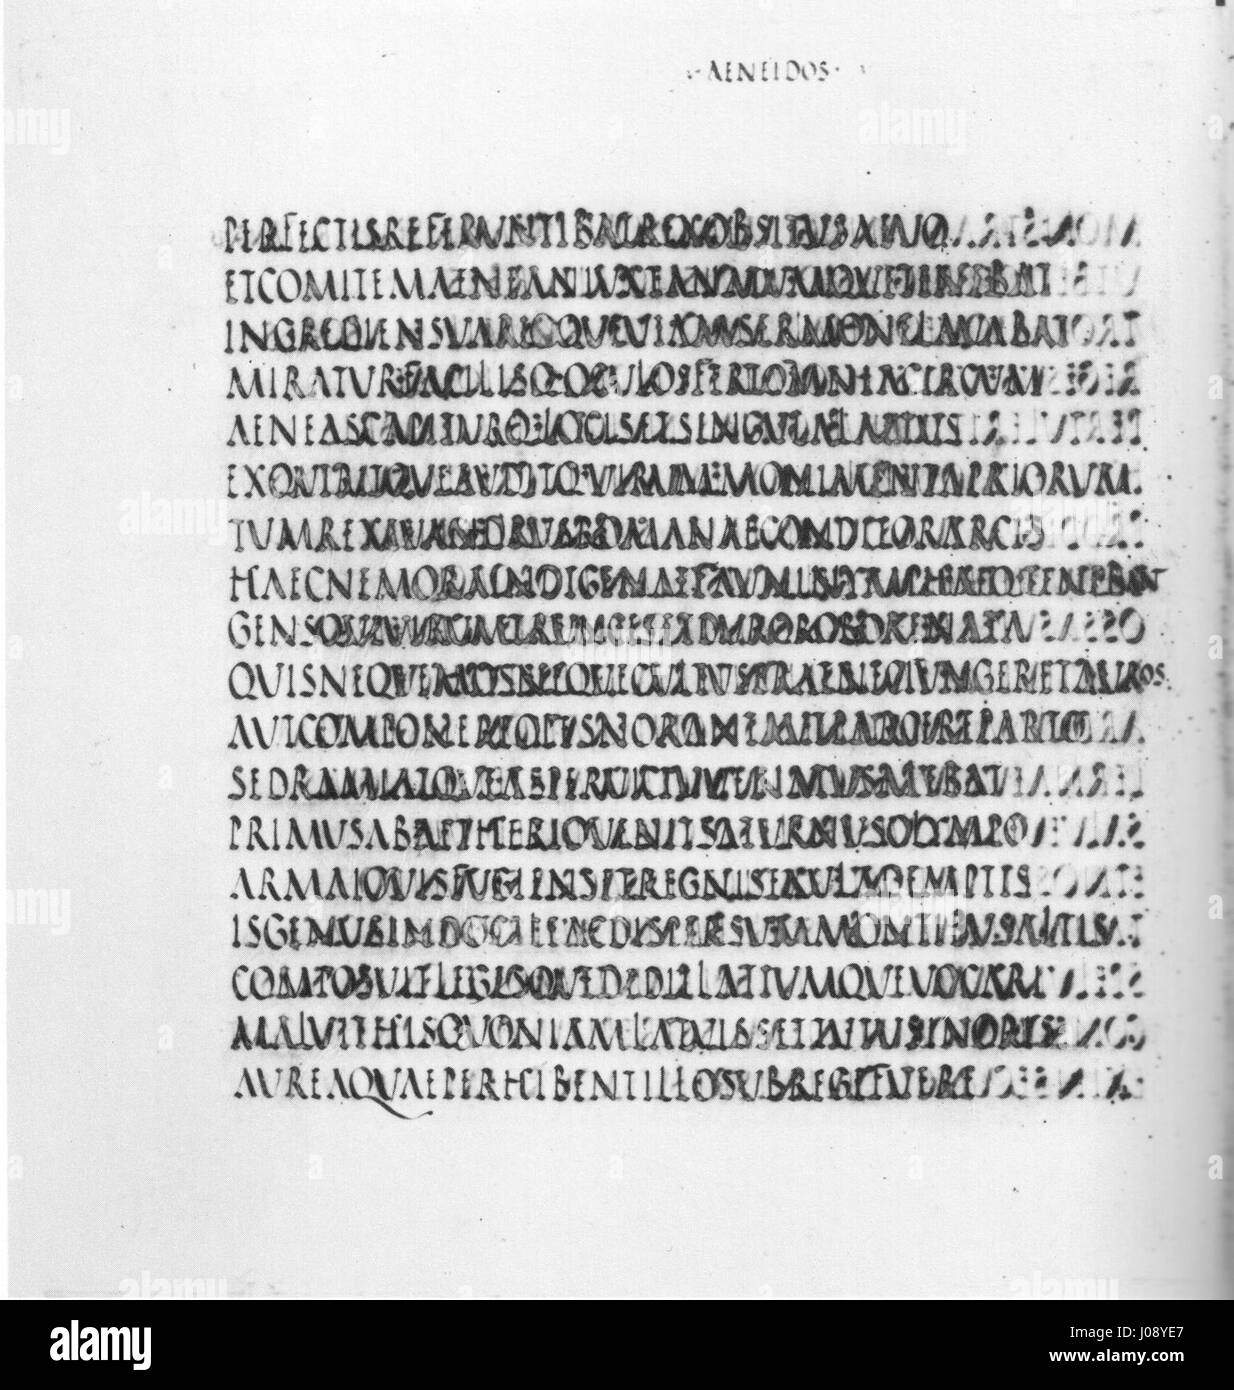 ·AENEIDOS·
PERFECTISREFERVNTIBATREXOBSITVSAEVO
ETCOMITEMAENEANIVXTANATVMQVETENEBAT
INGREDIENSVARIOQVEVIAMSERMONELEVABAT
MIRATVRFACILISQOCVLOSFERTOMNIACIRCVM
AENEASCAPITVRQLOCISETSINGVLALAETVS
EXQVIRITQVEAVDITQVIRVMMONIMENTAPRIORVM
TVMREXEVANDRVSROMANAECONDITORARCIS
HAECNEMORAINDIGENAEFAVNINYMPHAEQTENEBANT
GENSQVEVIRVMTRVNCISETDVROROBORENATA
QVISNEQVEMOSNEQVECVLTVSERATNECIVNGERETAVROS
AVTCOMPONEREOPESNORANTAVTPARCEREPARTO
SEDRAMIATQVEASPERVICTVVENATVSALEBAT
PRIMVSABAETHERIOVENITSATVRNVSOLYMPO
ARMAIOVISFVGIENSETREGNISEXVLADEMPTIS
ISGENVSINDOCILEACDISPERSVMMONTIBVSALTIS
COMPOSVITLEGESQVEDEDITLATIVMQVEVOCARI
MALVITHISQVONIAMLATVISSETTVTVSINORIS
AVREAQVAEPERHIBENTILLOSVBREGEFVERE